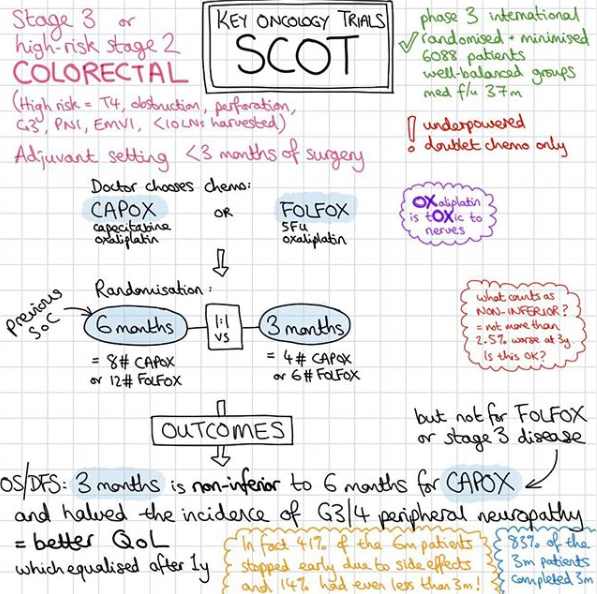 Stage 3 or
high-risk stage 2
COLORECTAL
(High risk = T4, obstruction, perforation,
G3, PNI, EMVI, <10LNs harvested)
Adjuvant setting <3 months of surgery
KEY ONCOLOGY TRIALS
SCOT
phase 3 international
randomised + minimised
6088 patients
well-balanced groups
med f/u 37m
! underpowered
doublet chemo only
Doctor chooses chemo:
CAPOX OR FOLFOX
capecitabine
oxaliplatin
5FU
oxaliplatin
OXaliplatin
is tOXic to
nerves
Randomisation:
Previous
SoC
6 months
1:1
vs
3 months
= 8# CAPOX
or 12# FOLFOX
= 4# CAPOX
or 6# FOLFOX
what counts as
NON-INFERIOR?
= not more than
2.5% worse at 3y
Is this OK?
OUTCOMES
but not for FOLFOX
or stage 3 disease
OS/DFS: 3 months is non-inferior to 6 months for CAPOX
and halved the incidence of G3/4 peripheral neuropathy
= better QoL
which equalised after 1y
In fact 41% of the 6m patients
stopped early due to side effects
and 14% had even less than 3m!
83% of the
3m patients
completed 3m